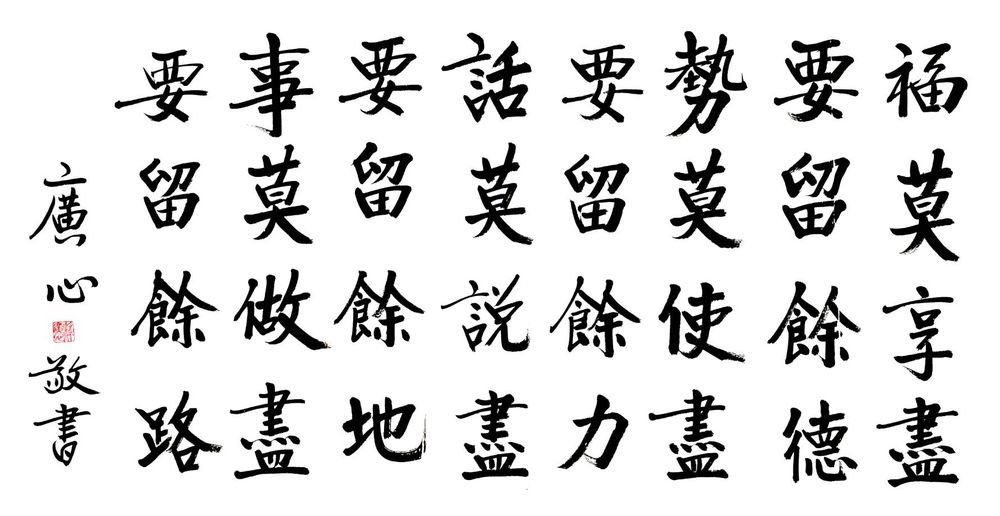 福莫享盡
要留餘德
勢莫使盡
要留餘力
話莫説盡
要留餘地
事莫做盡
要留餘路
廣心敬書